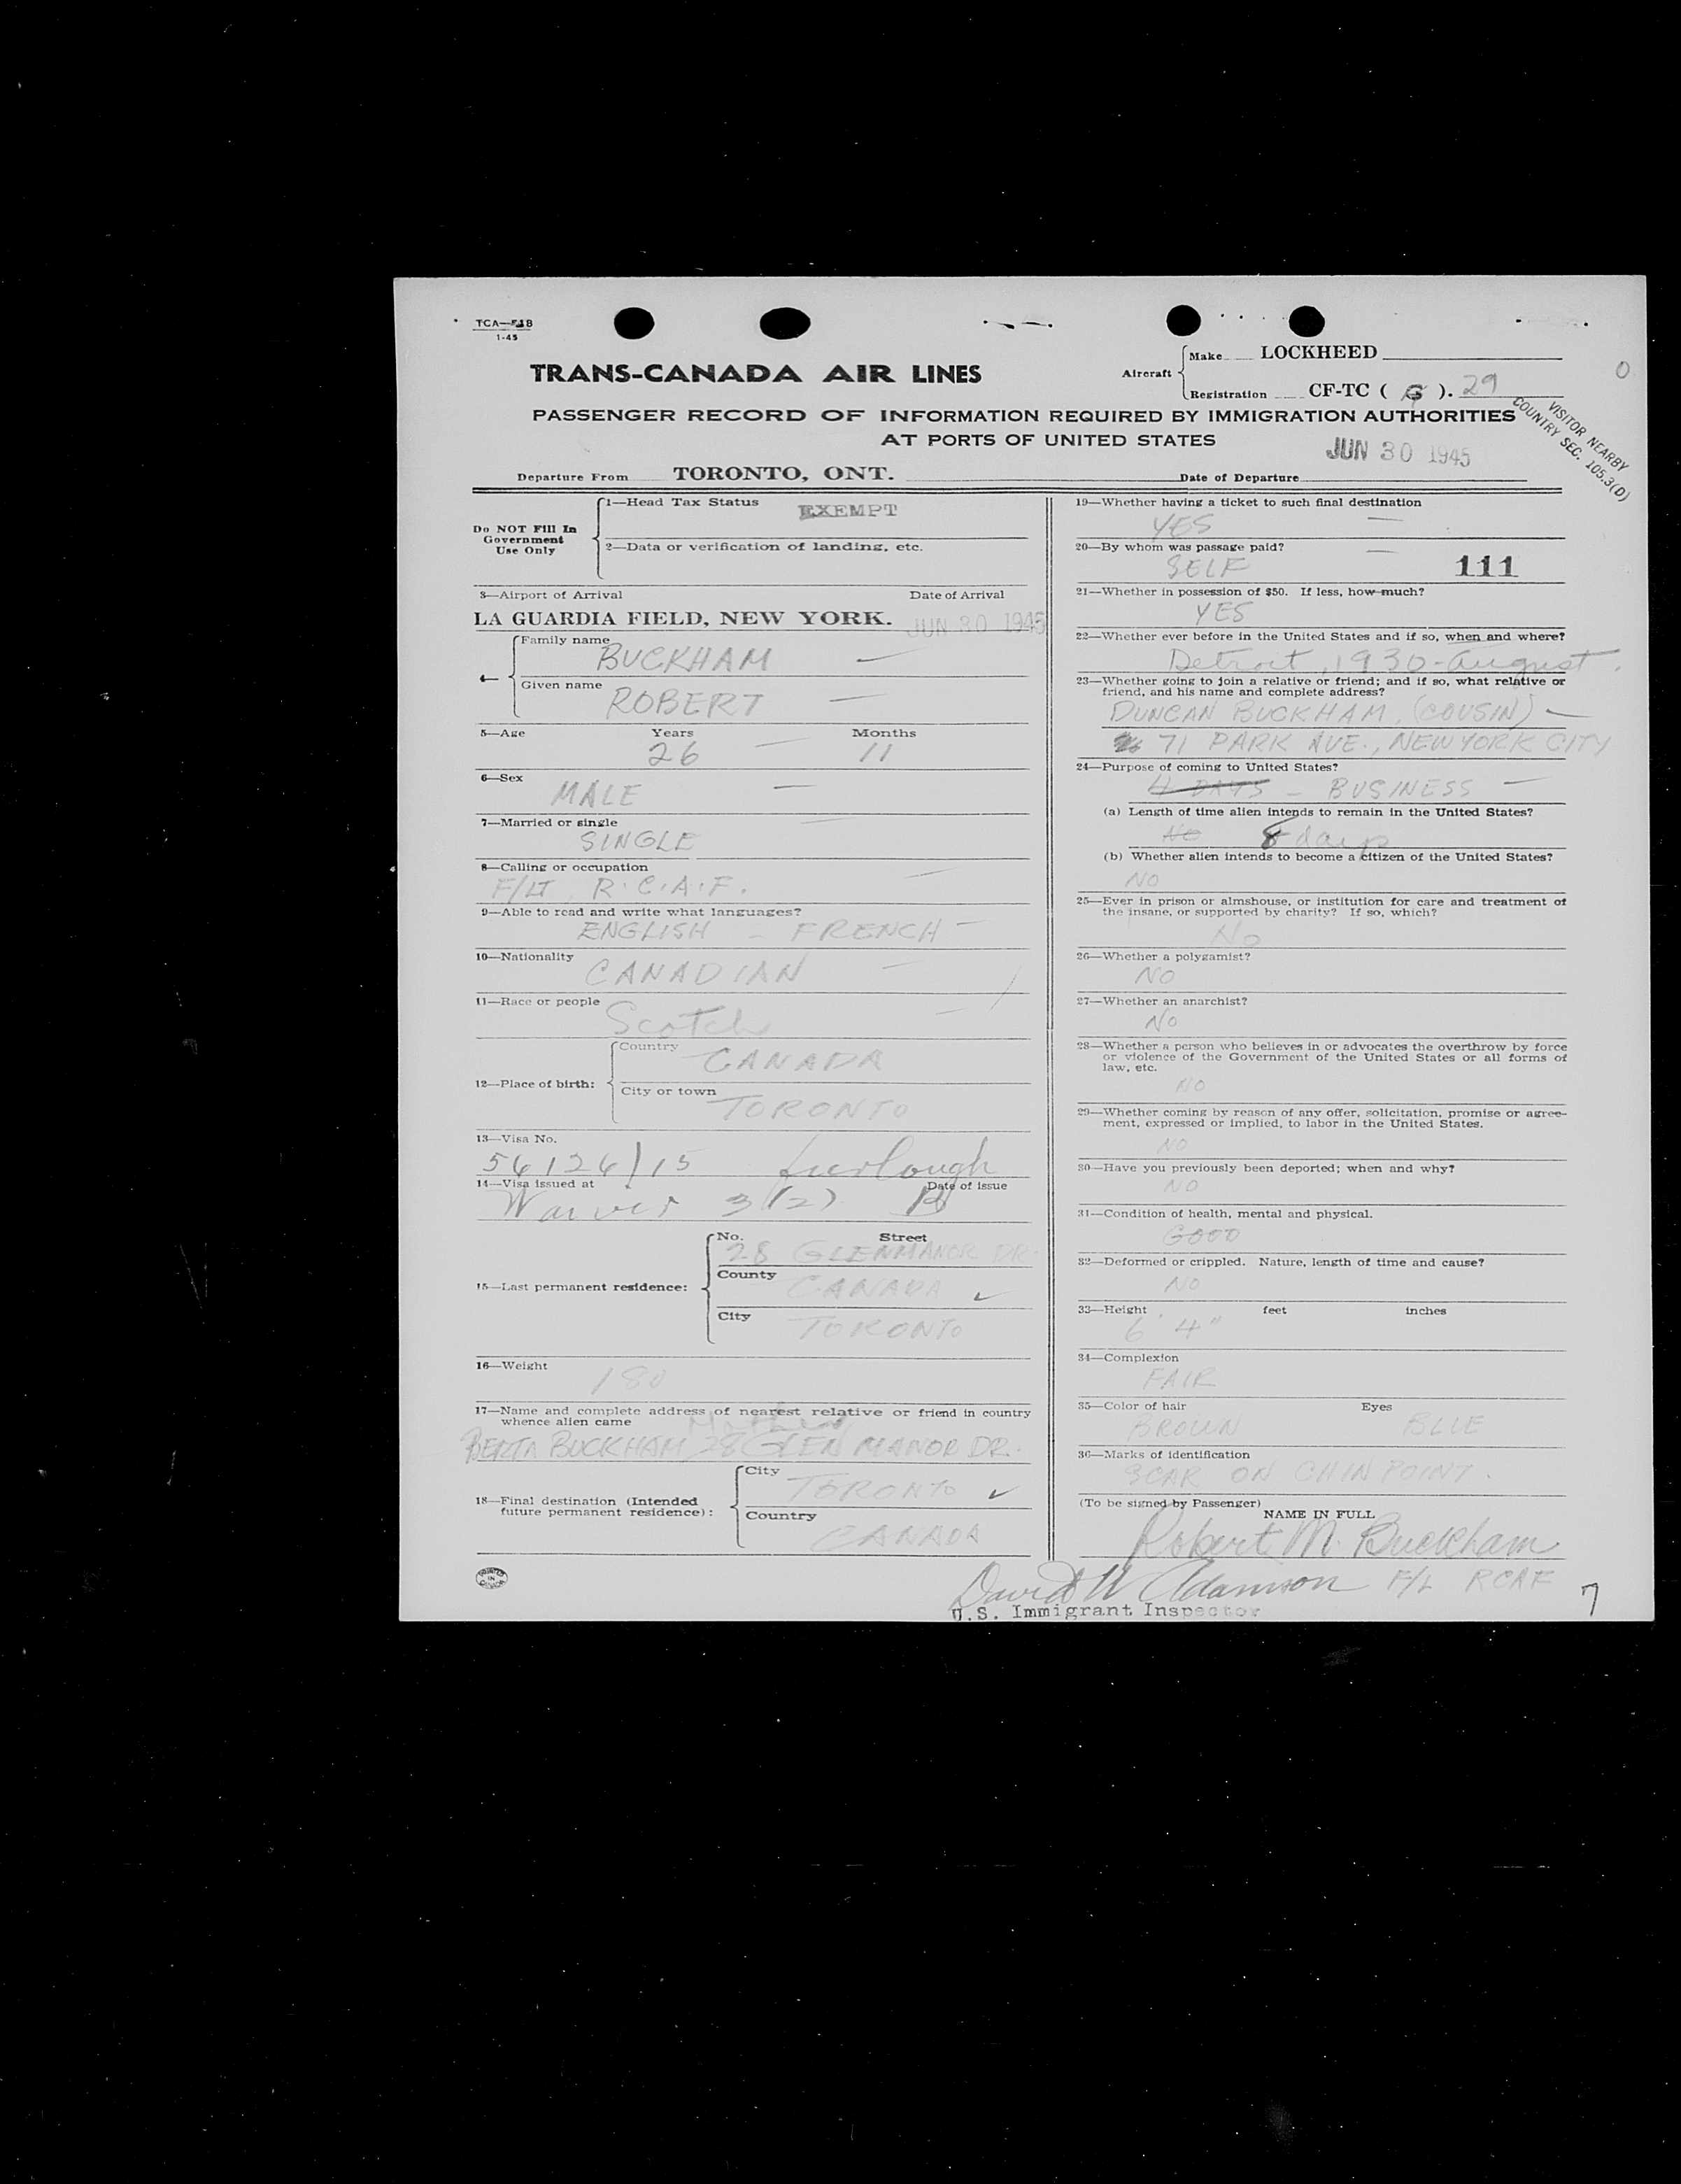 TCA—
1-45
TRANS-CANADA AIR LINES
Aircraft
Make LOCKHEED
Registration CF-TC ( G ). 29
0
PASSENGER RECORD OF INFORMATION REQUIRED BY IMMIGRATION AUTHORITIES
AT PORTS OF UNITED STATES
VISITOR NEARBY
COUNTRY SEC. 105.3(D)
JUN 30 1945
Departure From TORONTO, ONT.
Date of Departure
Do NOT Fill In
Government
Use Only
1—Head Tax Status EXEMPT
2—Data or verification of landing, etc.
3—Airport of Arrival Date of Arrival
LA GUARDIA FIELD, NEW YORK. JUN 30 1945
4— Family name
BUCKHAM —
Given name
ROBERT —
5—Age Years Months
26 — 11
6—Sex
MALE —
7—Married or single
SINGLE
8—Calling or occupation
F/LT R.C.A.F.
9—Able to read and write what languages?
ENGLISH - FRENCH -
10—Nationality
CANADIAN
11—Race or people
Scotch
12—Place of birth:
Country
CANADA
City or town
TORONTO
13—Visa No.
56126/15 furlough
14—Visa issued at Date of issue
Waiver 3(2)
15—Last permanent residence:
No. Street
28 GLENMANOR DR.
County
CANADA ✓
City
TORONTO
16—Weight
180
17—Name and complete address of nearest relative or friend in country
whence alien came Mother
BERTA BUCKHAM 28 GLEN MANOR DR.
18—Final destination (Intended
future permanent residence):
City
TORONTO ✓
Country
CANADA
PRINTED
IN
CANADA
19—Whether having a ticket to such final destination
YES —
20—By whom was passage paid?
SELF
111
21—Whether in possession of $50. If less, how much?
YES
22—Whether ever before in the United States and if so, when and where?
Detroit, 1930-August.
23—Whether going to join a relative or friend; and if so, what relative or
friend, and his name and complete address?
DUNCAN BUCKHAM, (COUSIN) —
71 PARK AVE., NEW YORK CITY
24—Purpose of coming to United States?
4 DAYS - BUSINESS —
(a) Length of time alien intends to remain in the United States?
8 days
(b) Whether alien intends to become a citizen of the United States?
NO
25—Ever in prison or almshouse, or institution for care and treatment of
the insane, or supported by charity? If so, which?
No
26—Whether a polygamist?
NO
27—Whether an anarchist?
No
28—Whether a person who believes in or advocates the overthrow by force
or violence of the Government of the United States or all forms of
law, etc.
NO
29—Whether coming by reason of any offer, solicitation, promise or agree-
ment, expressed or implied, to labor in the United States.
NO
30—Have you previously been deported; when and why?
NO
31—Condition of health, mental and physical.
GOOD
32—Deformed or crippled. Nature, length of time and cause?
NO
33—Height feet inches
6' 4"
34—Complexion
FAIR
35—Color of hair Eyes
BROWN BLUE
36—Marks of identification
SCAR ON CHIN POINT.
(To be signed by Passenger)
NAME IN FULL
Robert M. Buckham
David W Adamson F/L RCAF
U.S. Immigrant Inspector
7